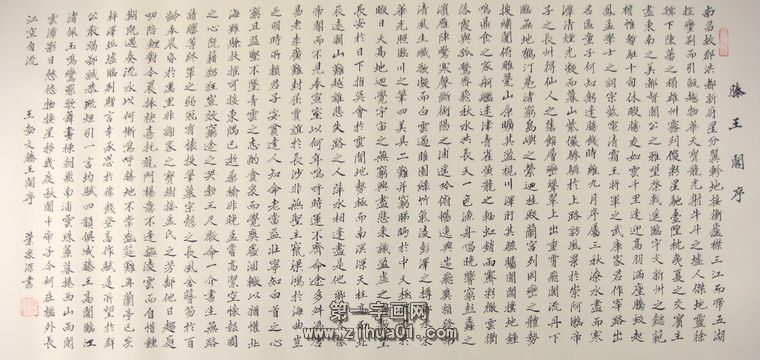 滕王閣序
南昌故郡洪都新府星分翼軫地接衡廬襟三江而帶五湖
控蠻荊而引甌越物華天寶龍光射牛斗之墟人傑地靈徐
孺下陳蕃之榻雄州霧列俊彩星馳臺隍枕夷夏之交賓主
盡東南之美都督閻公之雅望棨戟遙臨宇文新洲之懿範
襜帷暫駐十旬休暇勝友如雲千里逢迎高朋滿座騰蛟起
鳳孟學士之詞宗紫電清霜王將軍之武庫家君作宰路出
名區童子何知躬逢勝餞時維九月序屬三秋潦水盡而寒
潭清煙光凝而暮山紫儼驂騑於上路訪風景於崇阿臨帝
子之長州得仙人之舊館層巒聳翠上出重霄飛閣流丹下
臨無地鶴汀鳧渚窮島嶼之縈迴桂殿蘭宮列岡巒之體勢
披繡闥俯雕甍山原曠其盈視川澤盱其駭矚閭閻撲地鐘
鳴鼎食之家舸艦迷津青雀黃龍之軸虹銷雨霽彩徹雲衢
落霞與孤鶩齊飛秋水共長天一色漁舟唱晚響窮彭蠡之
濱雁陣驚寒聲斷衡陽之浦遙吟俯暢逸興遄飛爽籟發而
清風生纖歌凝而白雲遏睢園綠竹氣凌彭澤之樽鄴水朱
華光照臨川之筆四美具二難並窮睇眄於中天極娛遊於
暇日天高地迥覺宇宙之無窮興盡悲來識盈虛之有數望
長安於日下指吳會於雲間地勢極而南溟深天柱高而北
辰遠關山難越誰悲失路之人萍水相逢盡是他鄉之客懷
帝閽而不見奉宣室以何年嗚呼時運不齊命途多舛馮唐易
老李廣難封屈賈誼於長沙非無聖主竄梁鴻於海曲豈
乏明時所賴君子安貧達人知命老當益壯寧知白首之心
窮且益堅不墜青雲之志酌貪泉而覺爽處涸轍以猶懽北
海雖賒扶搖可接東隅已逝桑榆非晚孟嘗高潔空懷報國
之心阮籍猖狂豈效窮途之哭勃三尺微命一介書生無路
請纓等終軍之弱冠有懷投筆慕宗愨之長風舍簪笏於百
齡奉晨昏於萬里非謝家之寶樹接孟氏之芳鄰他日趨庭
叨陪鯉對今晨捧袂喜托龍門楊意不逢撫凌雲而自惜鍾
期既遇奏流水以何慚嗚呼勝地不常盛筵難再蘭亭已矣
梓澤丘墟臨別贈言幸承恩於偉餞登高作賦是所望於群
公敢竭鄙誠恭疏短引一言均賦四韻俱成滕王高閣臨江
渚佩玉鳴鸞罷歌舞畫棟朝飛南浦雲珠簾暮捲西山雨閒
雲潭影日悠悠物換星移幾度秋閣中帝子今何在檻外長
江空自流
王勃文滕王閣序
字画第一网
www.zihua01.com